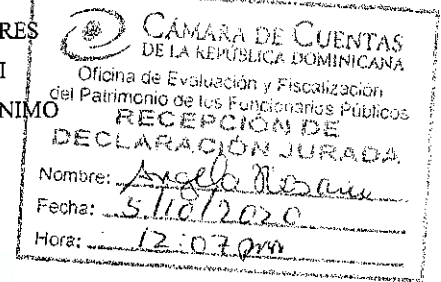 RES
I
NIMO
CÁMARA DE CUENTAS
DE LA REPÚBLICA DOMINICANA
Oficina de Evaluación y Fiscalización
del Patrimonio de los Funcionarios Públicos
RECEPCIÓN DE
DECLARACIÓN JURADA
Nombre: Angela
Fecha: 5/10/2020
Hora: 12:07 pm